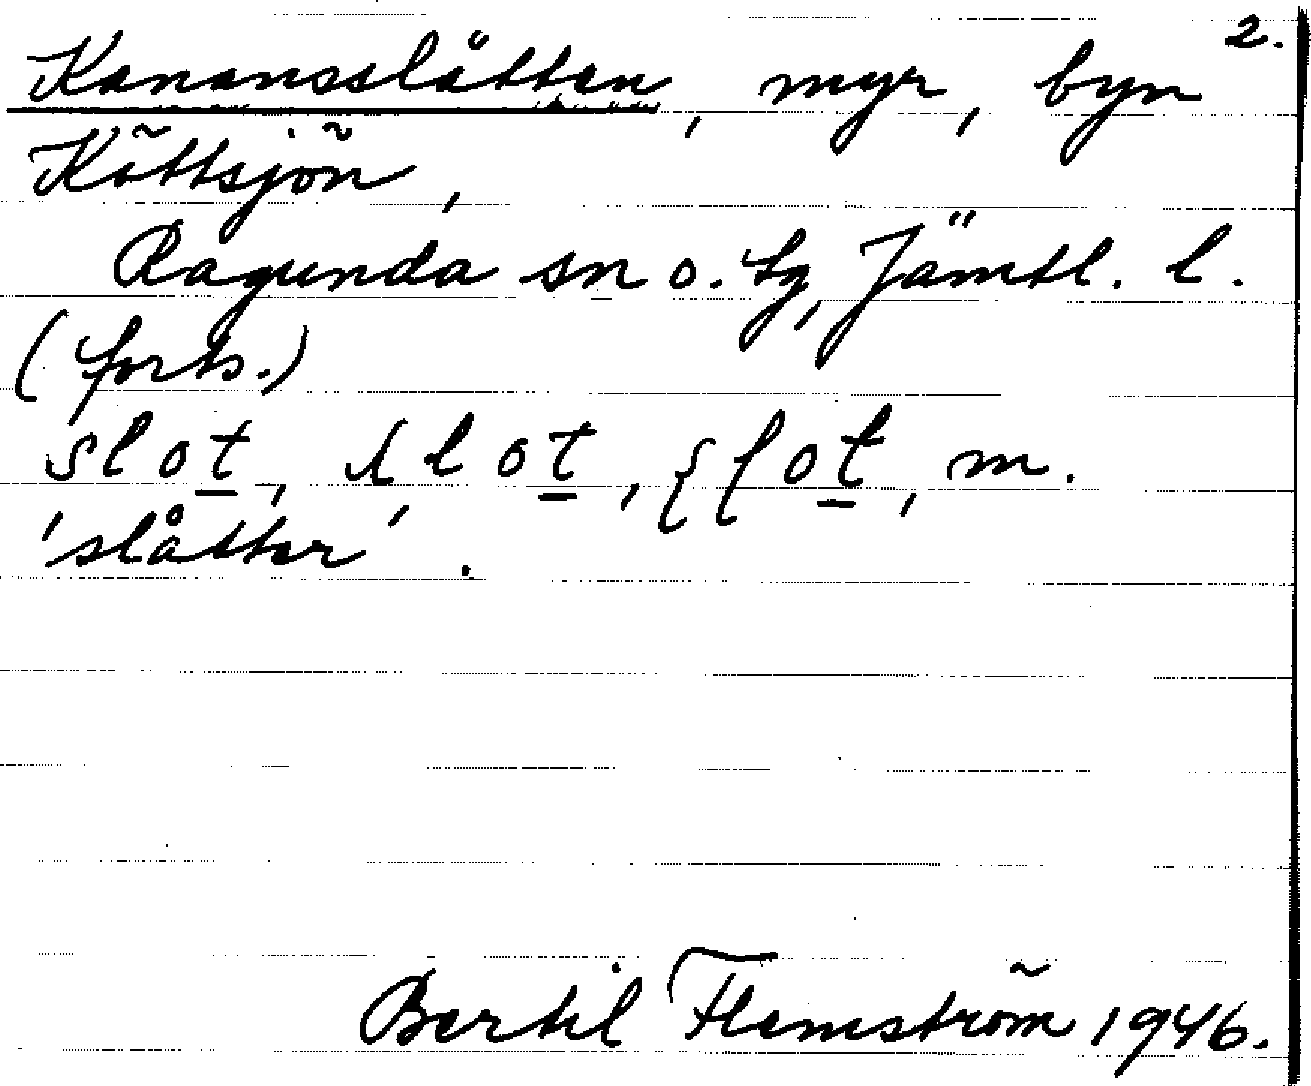 2.
Kanansslåtten, myr, byn
Köttsjön,
Ragunda sn o. tg, Jämtl. l.
(forts.)
slot, slot, ʃlot, m.
'slåtter'.
Bertil Flemström 1946.